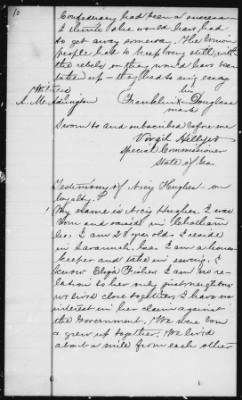 10
Confederacy had been a success
I think Jake would have had
to get away somewhere. The Union
people had to keep very still with
the rebels or they would have been
taken up — they had to sing easy
his
Witness Franklin X Douglass
A. M. Adington mark
Sworn to and subscribed before me
Virgil Hillyer
Special Commissioner
State of Ga
Testimony of Hughes on
loyalty.
My name is Hughes. I was
born and raised in Chatham
Co. I am 28 years old I reside
in Savannah, Ga. I am a house
keeper and take in sewing. I
know Eliza Fisher. I am no re-
lation to her only just neighbors
we lived close together. I have no
interest in her claim against
the Government. We were born
& grew up together. We lived
about a mile from each other